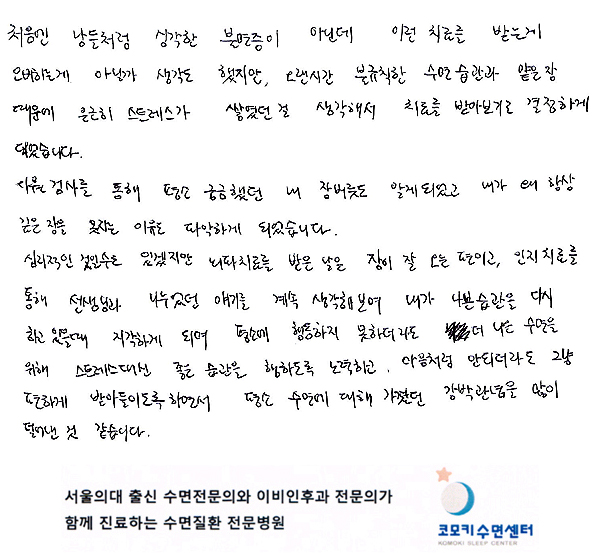 처음엔 남들처럼 심각한 불면증이 아닌데 이런 치료를 받는게
오버하는게 아닌가 생각도 했지만, 오랜시간 불규칙한 수면 습관과 얕은 잠
때문에 은근히 스트레스가 쌓였던 걸 생각해서 치료를 받아보기로 결정하게
되었습니다.
수면검사를 통해 평소 궁금했던 내 잠버릇도 알게되었고 내가 왜 항상
깊은 잠을 못자는 이유도 파악하게 되었습니다.
심리적인 것일수도 있겠지만 뇌파치료를 받은 날은 잠이 잘 오는 편이고, 인지치료를
통해 선생님과 나누었던 얘기를 계속 생각해보며 내가 나쁜습관을 다시
하고 있을때 지각하게 되며 평소에 행동하지 못하더라도 더 나은 수면을
위해 스트레스대신 좋은 습관을 행하도록 노력하고, 마음처럼 안되더라도 그냥
편하게 받아들이도록하면서 평소 수면에 대해 가졌던 강박관념을 많이
덜어낸 것 같습니다.
서울의대 출신 수면전문의와 이비인후과 전문의가
함께 진료하는 수면질환 전문병원
코모키수면센터
KOMOKI SLEEP CENTER